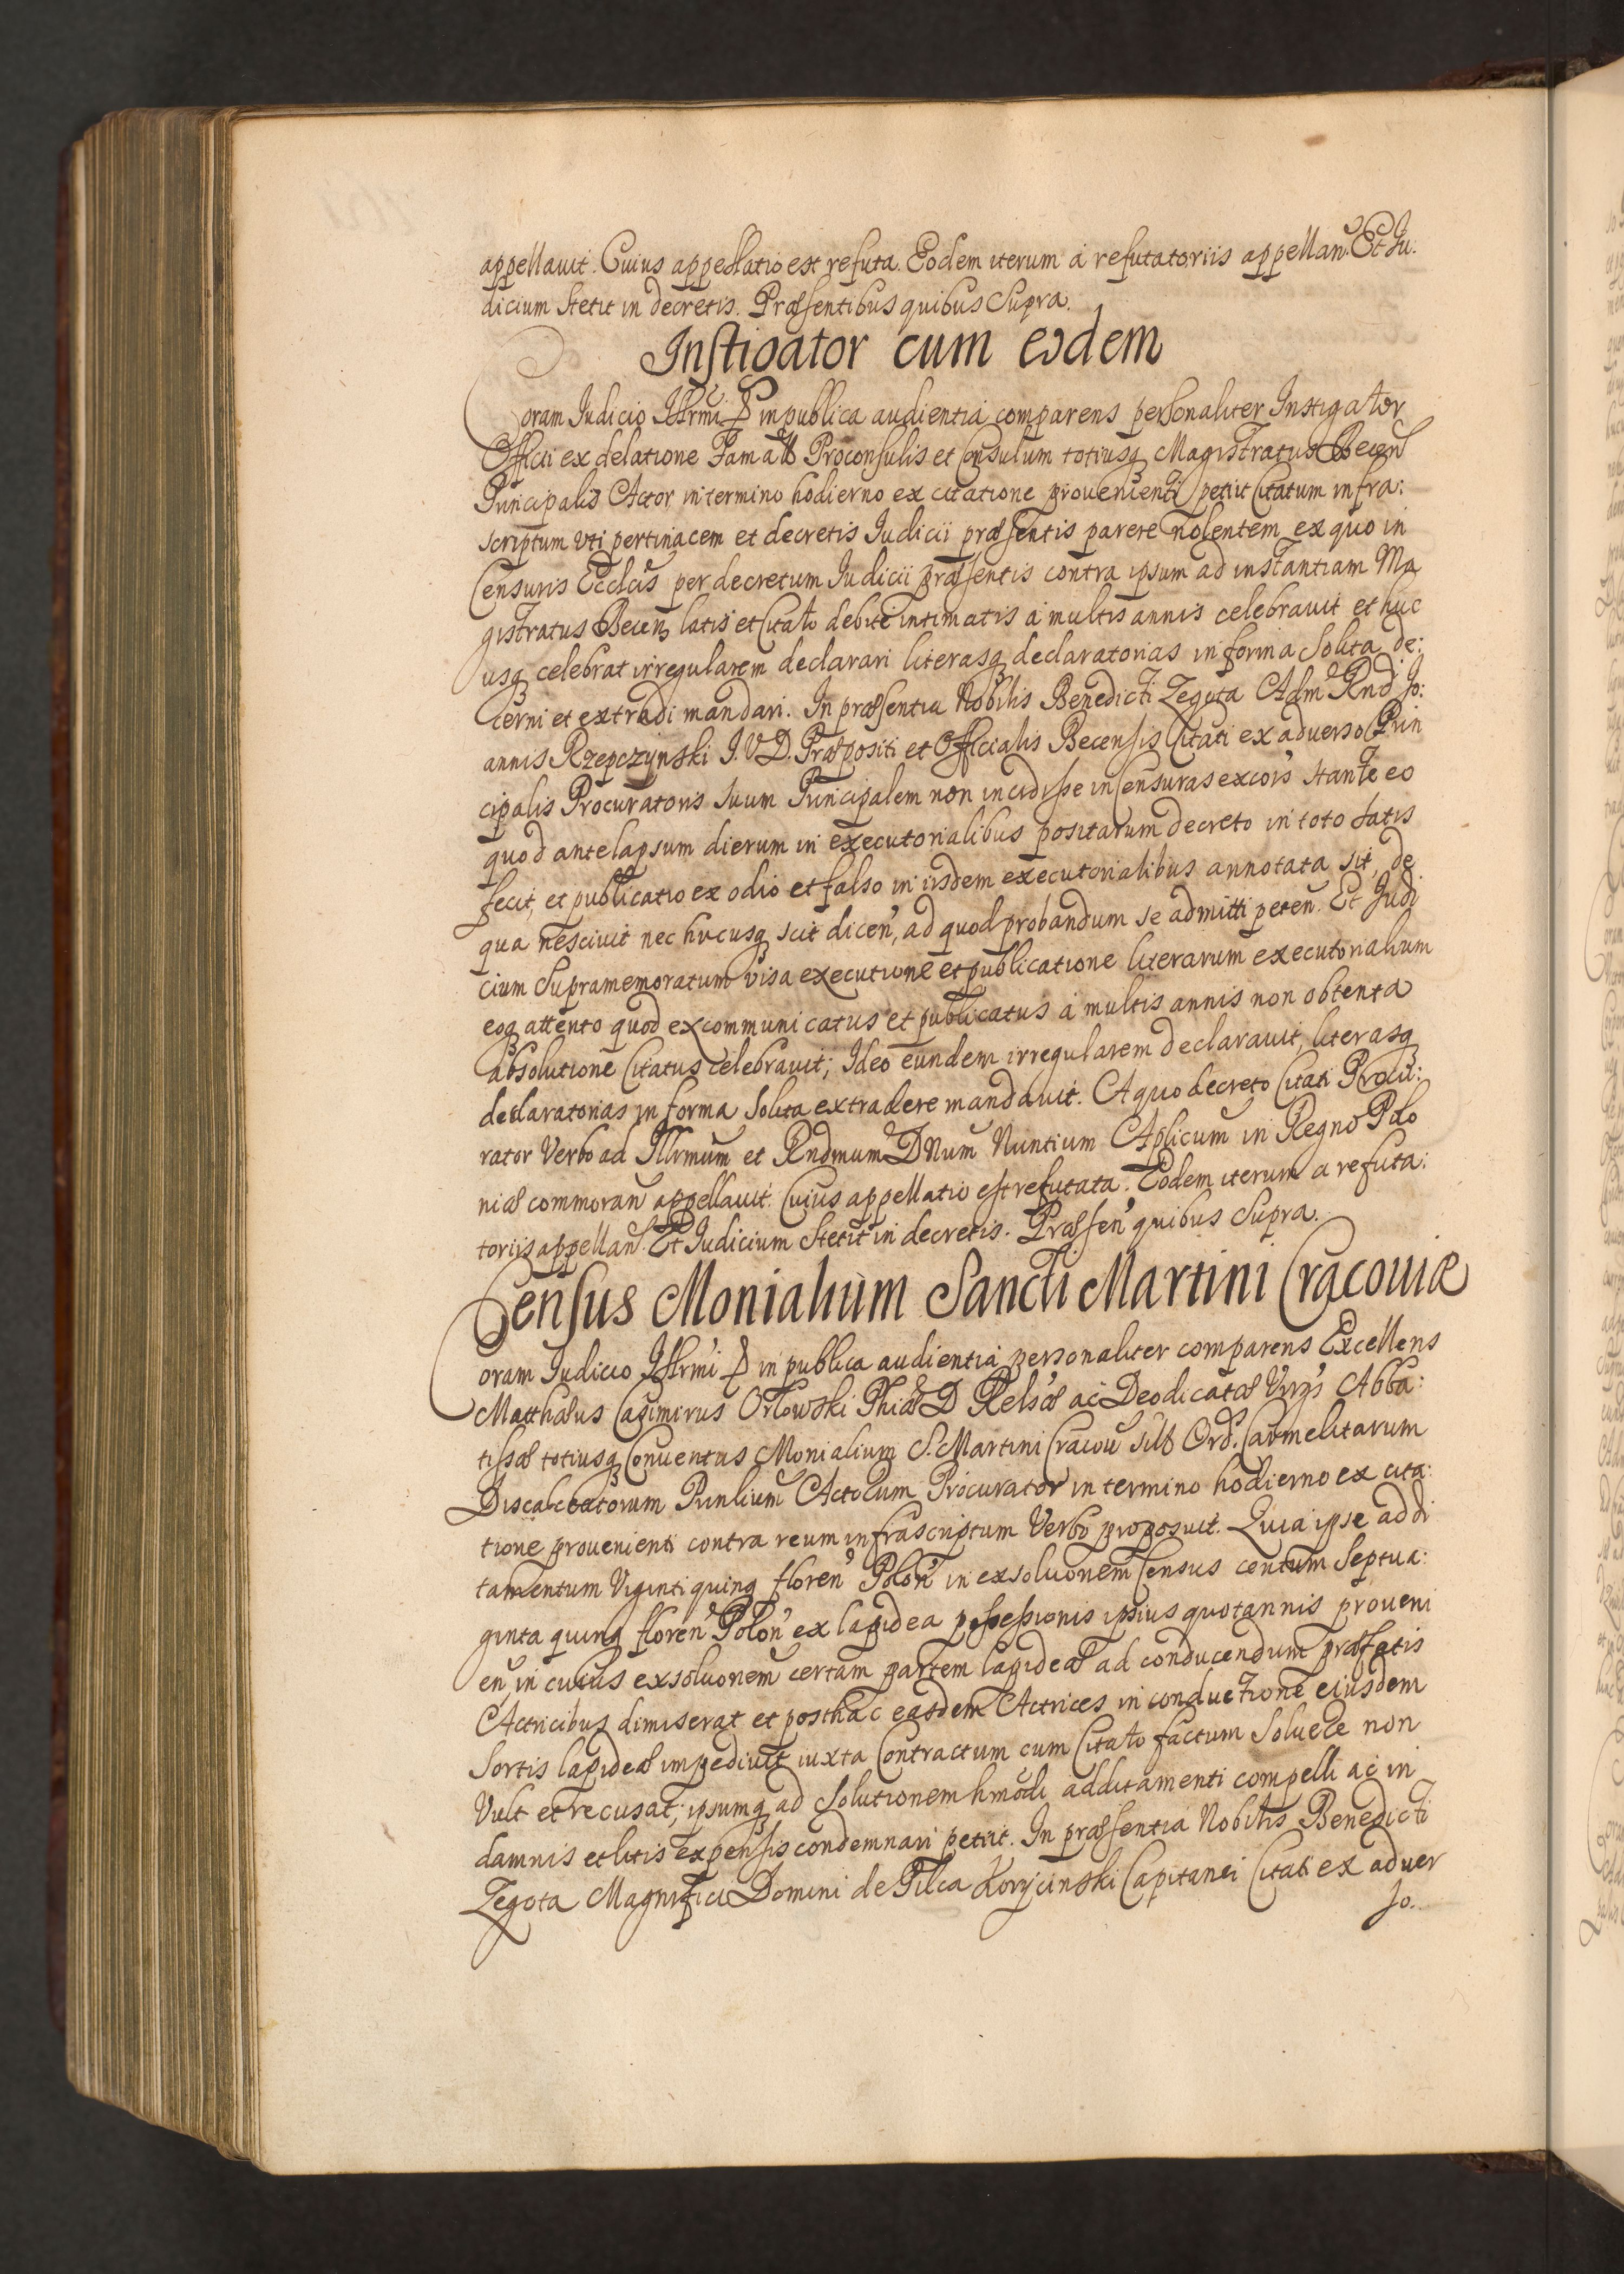 appellauit. Cuius appellatio est refuta. Eodem iterum á refutatoriis appellan. Et Iu:
dicium Stetit in decretis. Præsentibus quibus Supra.
Instigator cum eodem
Coram Iudicio Illrmi in publica audientia comparens personaliter Instigator
Officii ex delatione Famatt Proconsulis et Consulum totiusq Magistratus Becen
Principalis Actor in termino hodierno ex citatione prouenienti petiit Citatum infra:
scriptum vti pertinacem et decretis Iudicii præsentis parere nolentem ex quo in
Censuris Ecclcis per decretum Iudicii præsentis contra ipsum ad instantiam Ma
gistratus Becen latis et Citato debite intimatis á multis annis celebrauit et huc
usq celebrat irregularem declarari literasq declaratorias in forma Solita de:
cerni et extradi mandari. In præsentia Nobilis Benedicti Zegota Adm Rnd Io:
annis Rzepczynski I.V.D. Præpositi et Officialis Becensis Citati ex aduerso Prin
cipalis Procuratoris suum Principalem non incidisse in Censuras excois stante eo
quod ante lapsum dierum in executorialibus positarum decreto in toto satis
fecit, et publicatio ex odio et falso in iisdem executorialibus annotata sit, de
qua nesciuit nec hucusq scit dicen, ad quod probandum se admitti peten. Et Iudi
cium Supramemoratum visa executione et publicatione literarum executorialium
eoq attento quod excommunicatus et publicatus á multis annis non obtenta
absolutione Citatus celebrauit; Ideo eundem irregularem declarauit, literasq
declaratorias in forma Solita extradere mandauit. A quo decreto Citati Procu:
rator Verbo ad Illrmum et Rndmum Dnum Nuntium Aplicum in Regno Polo
niæ commoran appellauit. Cuius appellatio est refutata. Eodem iterum a refuta:
toriis appellan. Et Iudicium Stetit in decretis. Præsen quibus Supra.
Census Monialium Sancti Martini Cracouiæ
Coram Iudicio Illrmi in publica audientia personaliter comparens Excellens
Matthæus Casimirus Orłowski Phiæ D Relsæ ac Deodicatæ Virgis Abba:
tissæ totiusq Conuentus Monialium S. Martini Cracou sub Ord. Carmelitarum
Discalceatorum Prinlium Actorum Procurator in termino hodierno ex cita:
tione prouenienti contra reum infrascriptum Verbo proposuit. Quia ipse addi
tamentum Viginti quinq floren Polon in exsoluonem Census centum Septua:
ginta quinq floren Polon ex lapidea possessionis ipsius quotannis proueni
en, in cuius exsoluonem certam partem lapideæ ad conducendum præfatis
Actricibus dimiserat et posthac easdem Actrices in conductione eiusdem
Sortis lapideæ impediuit iuxta Contractum cum Citato factum Soluere non
Vult et recusat; ipsumq ad Solutionem hmodi additamenti compelli ac in
damnis et litis expensis condemnari petiit. In præsentia Nobilis Benedicti
Zegota Magnifici Domini de Pilca Korycinski Capitanei Citati ex aduer
so.